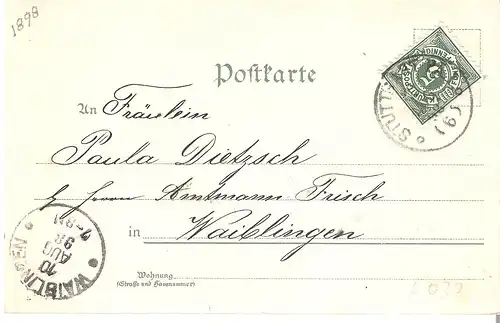 1898
Postkarte
An Fräulein
Paula Dietzsch
p Herrn Amtmann Frisch
in Waiblingen
Wohnung
(Straße und Hausnummer)
WAIBLINGEN
10
AUG
98
7-8 N
STUTTGART